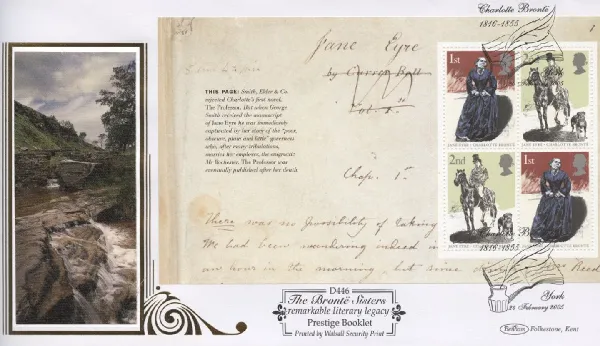 Charlotte Brontë
1816-1855
Jane Eyre
by Currer Bell
Vol. 1.
THIS PAGE: Smith, Elder & Co.
rejected Charlotte's first novel,
The Professor. But when George
Smith received the manuscript
of Jane Eyre he was immediately
captivated by her story of the "poor,
obscure, plain and little" governess
who, after many tribulations,
marries his employer, the enigmatic
Mr Rochester. The Professor was
eventually published after her death.
Chap. 1.
There was no possibility of taking
We had been wandering indeed in
an hour in the morning, but since
Reed
1st
2nd
JANE EYRE · CHARLOTTE BRONTË
JANE EYRE · CHARLOTTE BRONTË
2nd
1st
JANE EYRE · CHARLOTTE BRONTË
JANE EYRE · CHARLOTTE BRONTË
Charlotte Brontë
1816-1855
York
24 February 2005
D446
The Brontë Sisters
remarkable literary legacy
Prestige Booklet
Printed by Walsall Security Print
Benham
Folkestone, Kent